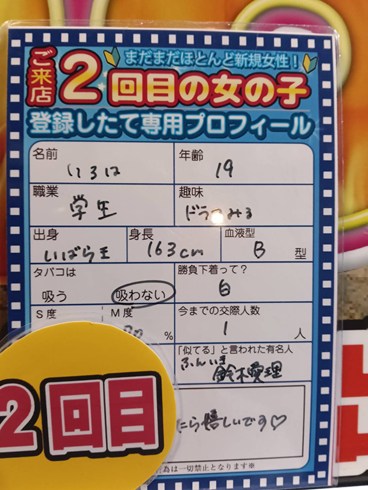 まだまだほとんど新規女性!
ご来店2回目の女の子
登録したて専用プロフィール
名前 いろは
年齢 19
職業 学生
趣味 ドラマみる
出身 いばらき
身長 163cm
血液型 B型
タバコは 吸う 吸わない
勝負下着って? 白
S度 M度 %
今までの交際人数 1人
「似てる」と言われた有名人
ふんいき 鈴木愛理
2回目
たら嬉しいです♡
為は一切禁止となります※